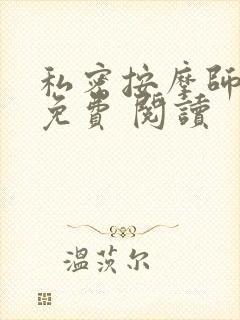 私密按摩師
免費 閱讀
溫茨尔